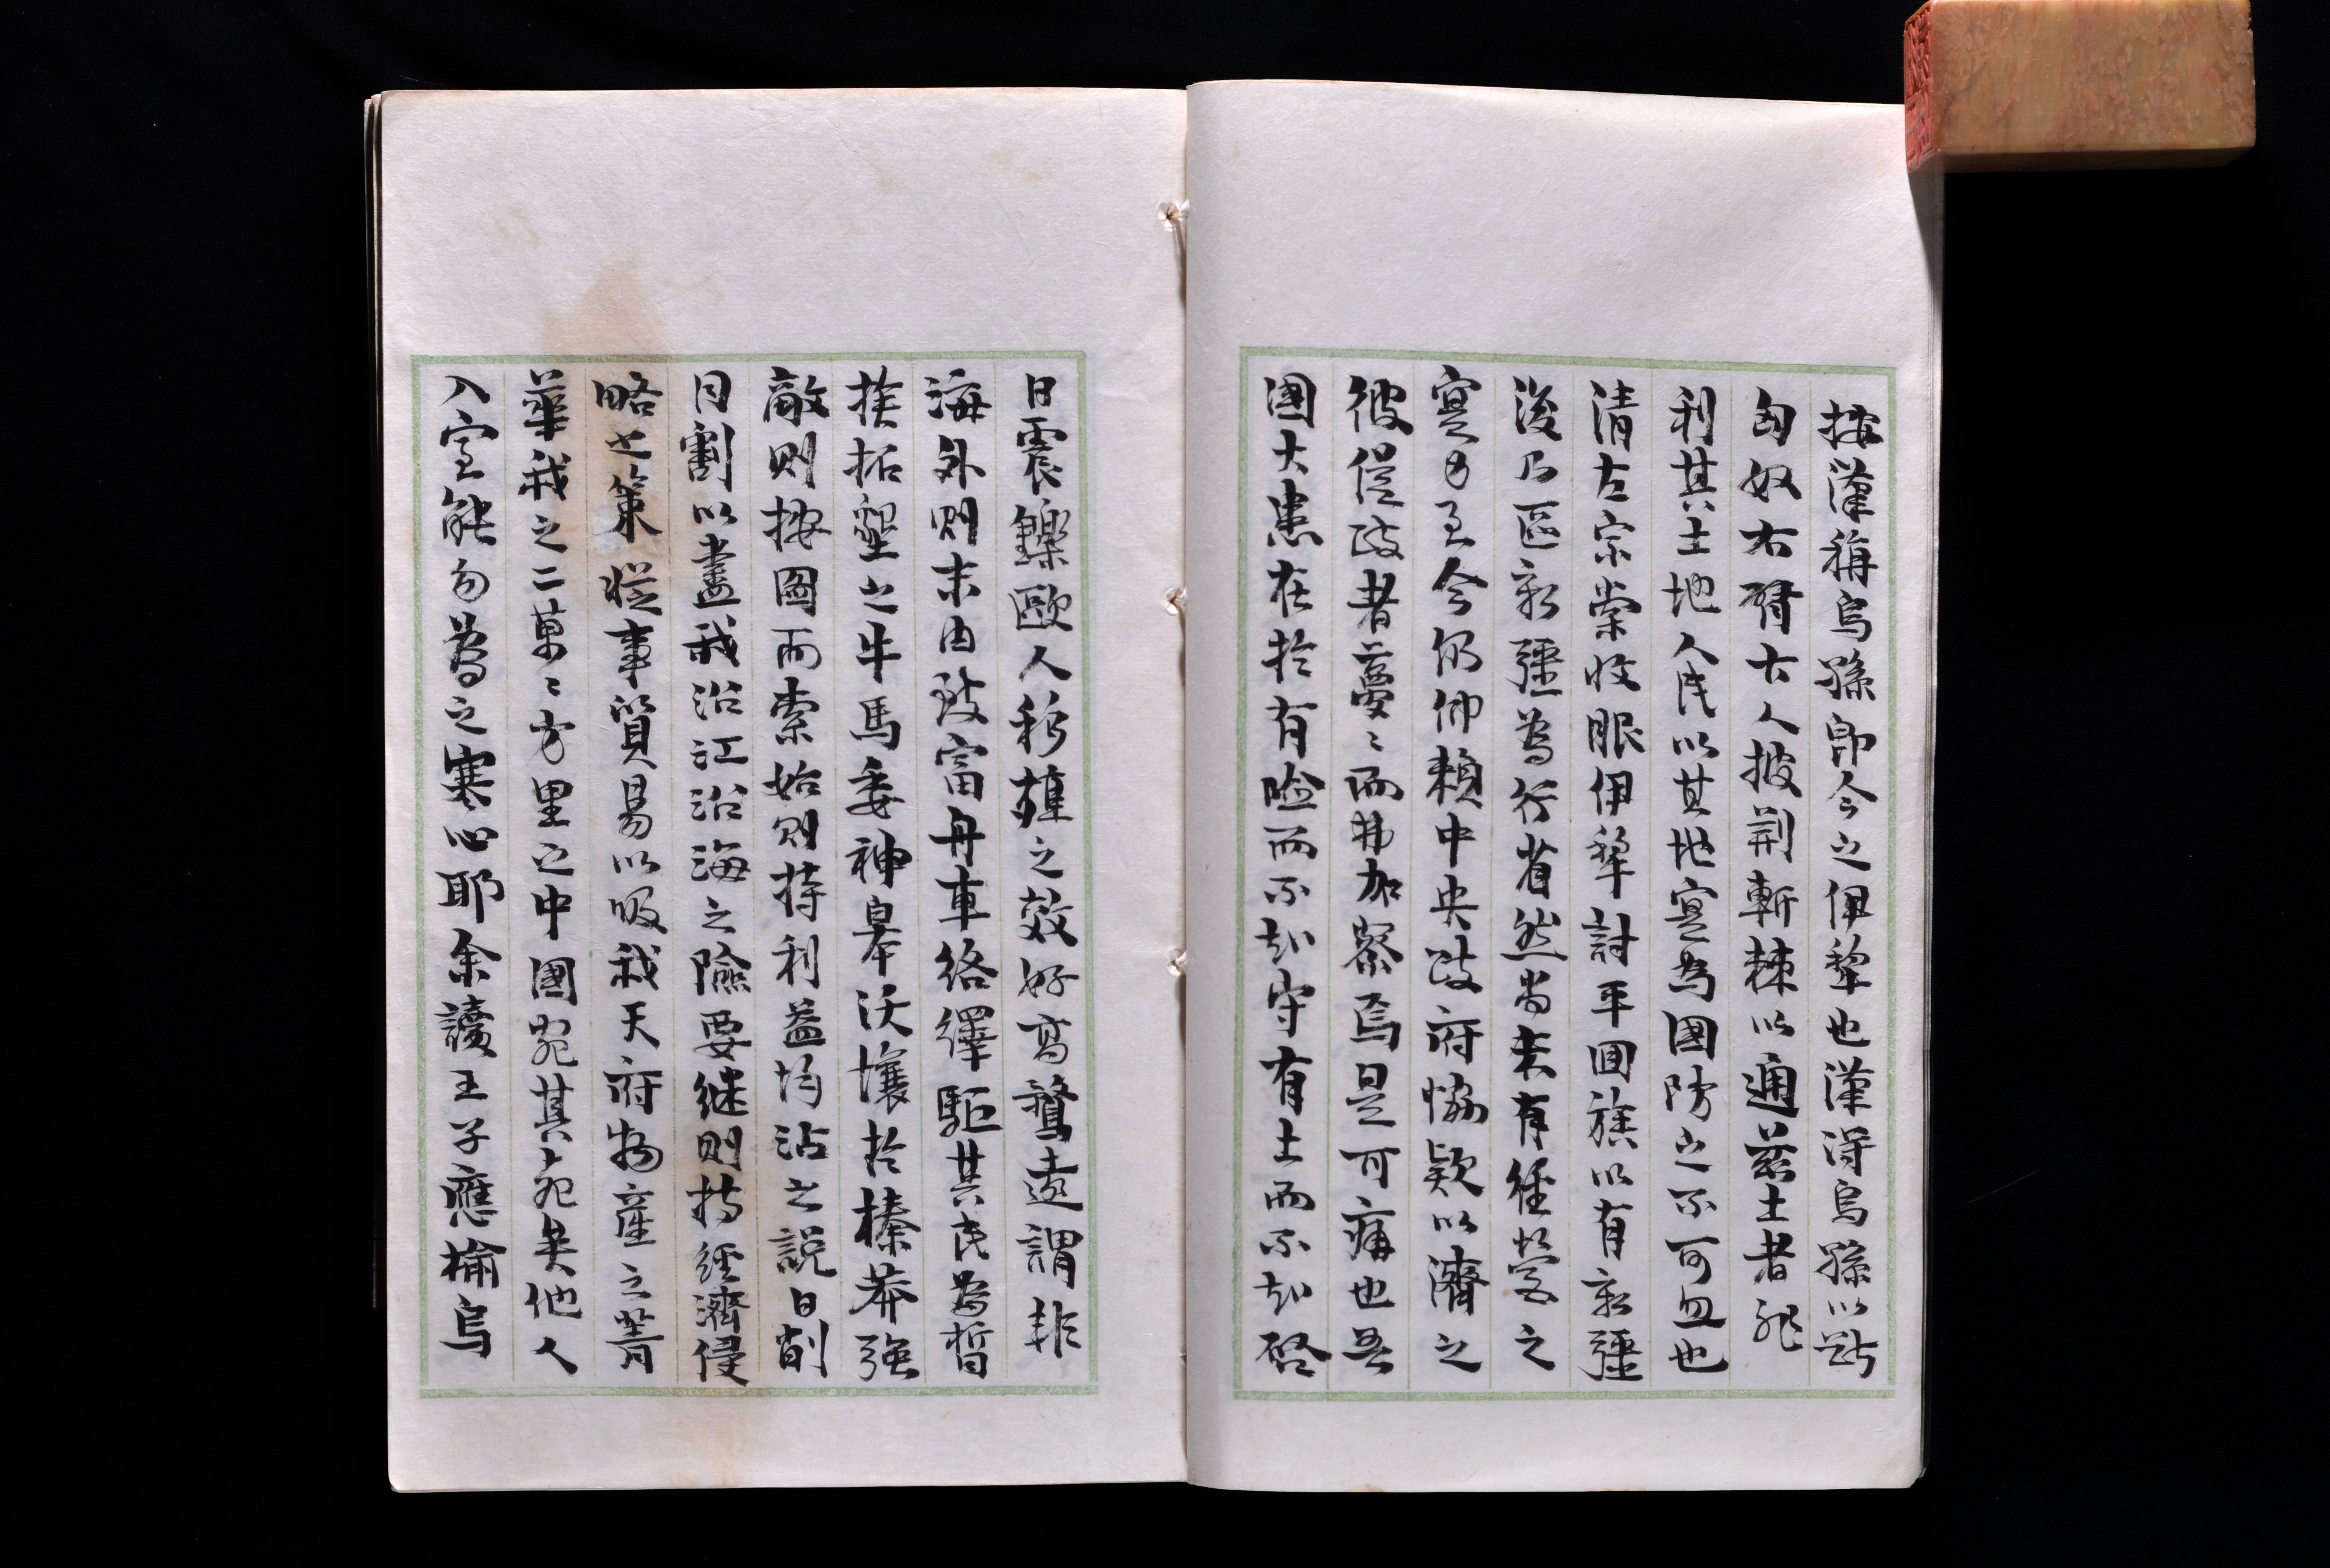 按漢稱烏孫即今之伊犂也漢得烏孫以斷
匈奴右臂古人披荆斬棘以通兹土者非
利其土地人民以其地寔為國防之不可忽也
清左宗棠收眼伊犂討平回族以有新疆
後乃區新疆為行省然尚未有經營之
寔力至今仍仰賴中央政府協欵以濟之
彼從政者夢〻而弗加察焉是可痛也吾
國大患在於有險而不知守有土而不知啓
日震鑠歐人移殖之效好高騖遠謂非
海外則末由致富舟車絡繹駈其民為晳
族拓墾之牛馬委神皋沃壤於榛莽強
敵則按圖而索始則持利益均沾之說日削
月割以盡我沿江沿海之險要継則持經濟侵
略之策從事貿易以吸我天府物產之菁
華我之二萬〻方里之中國宛其宛矣他人
入室能勿為之寒心耶余讀王子應榆烏